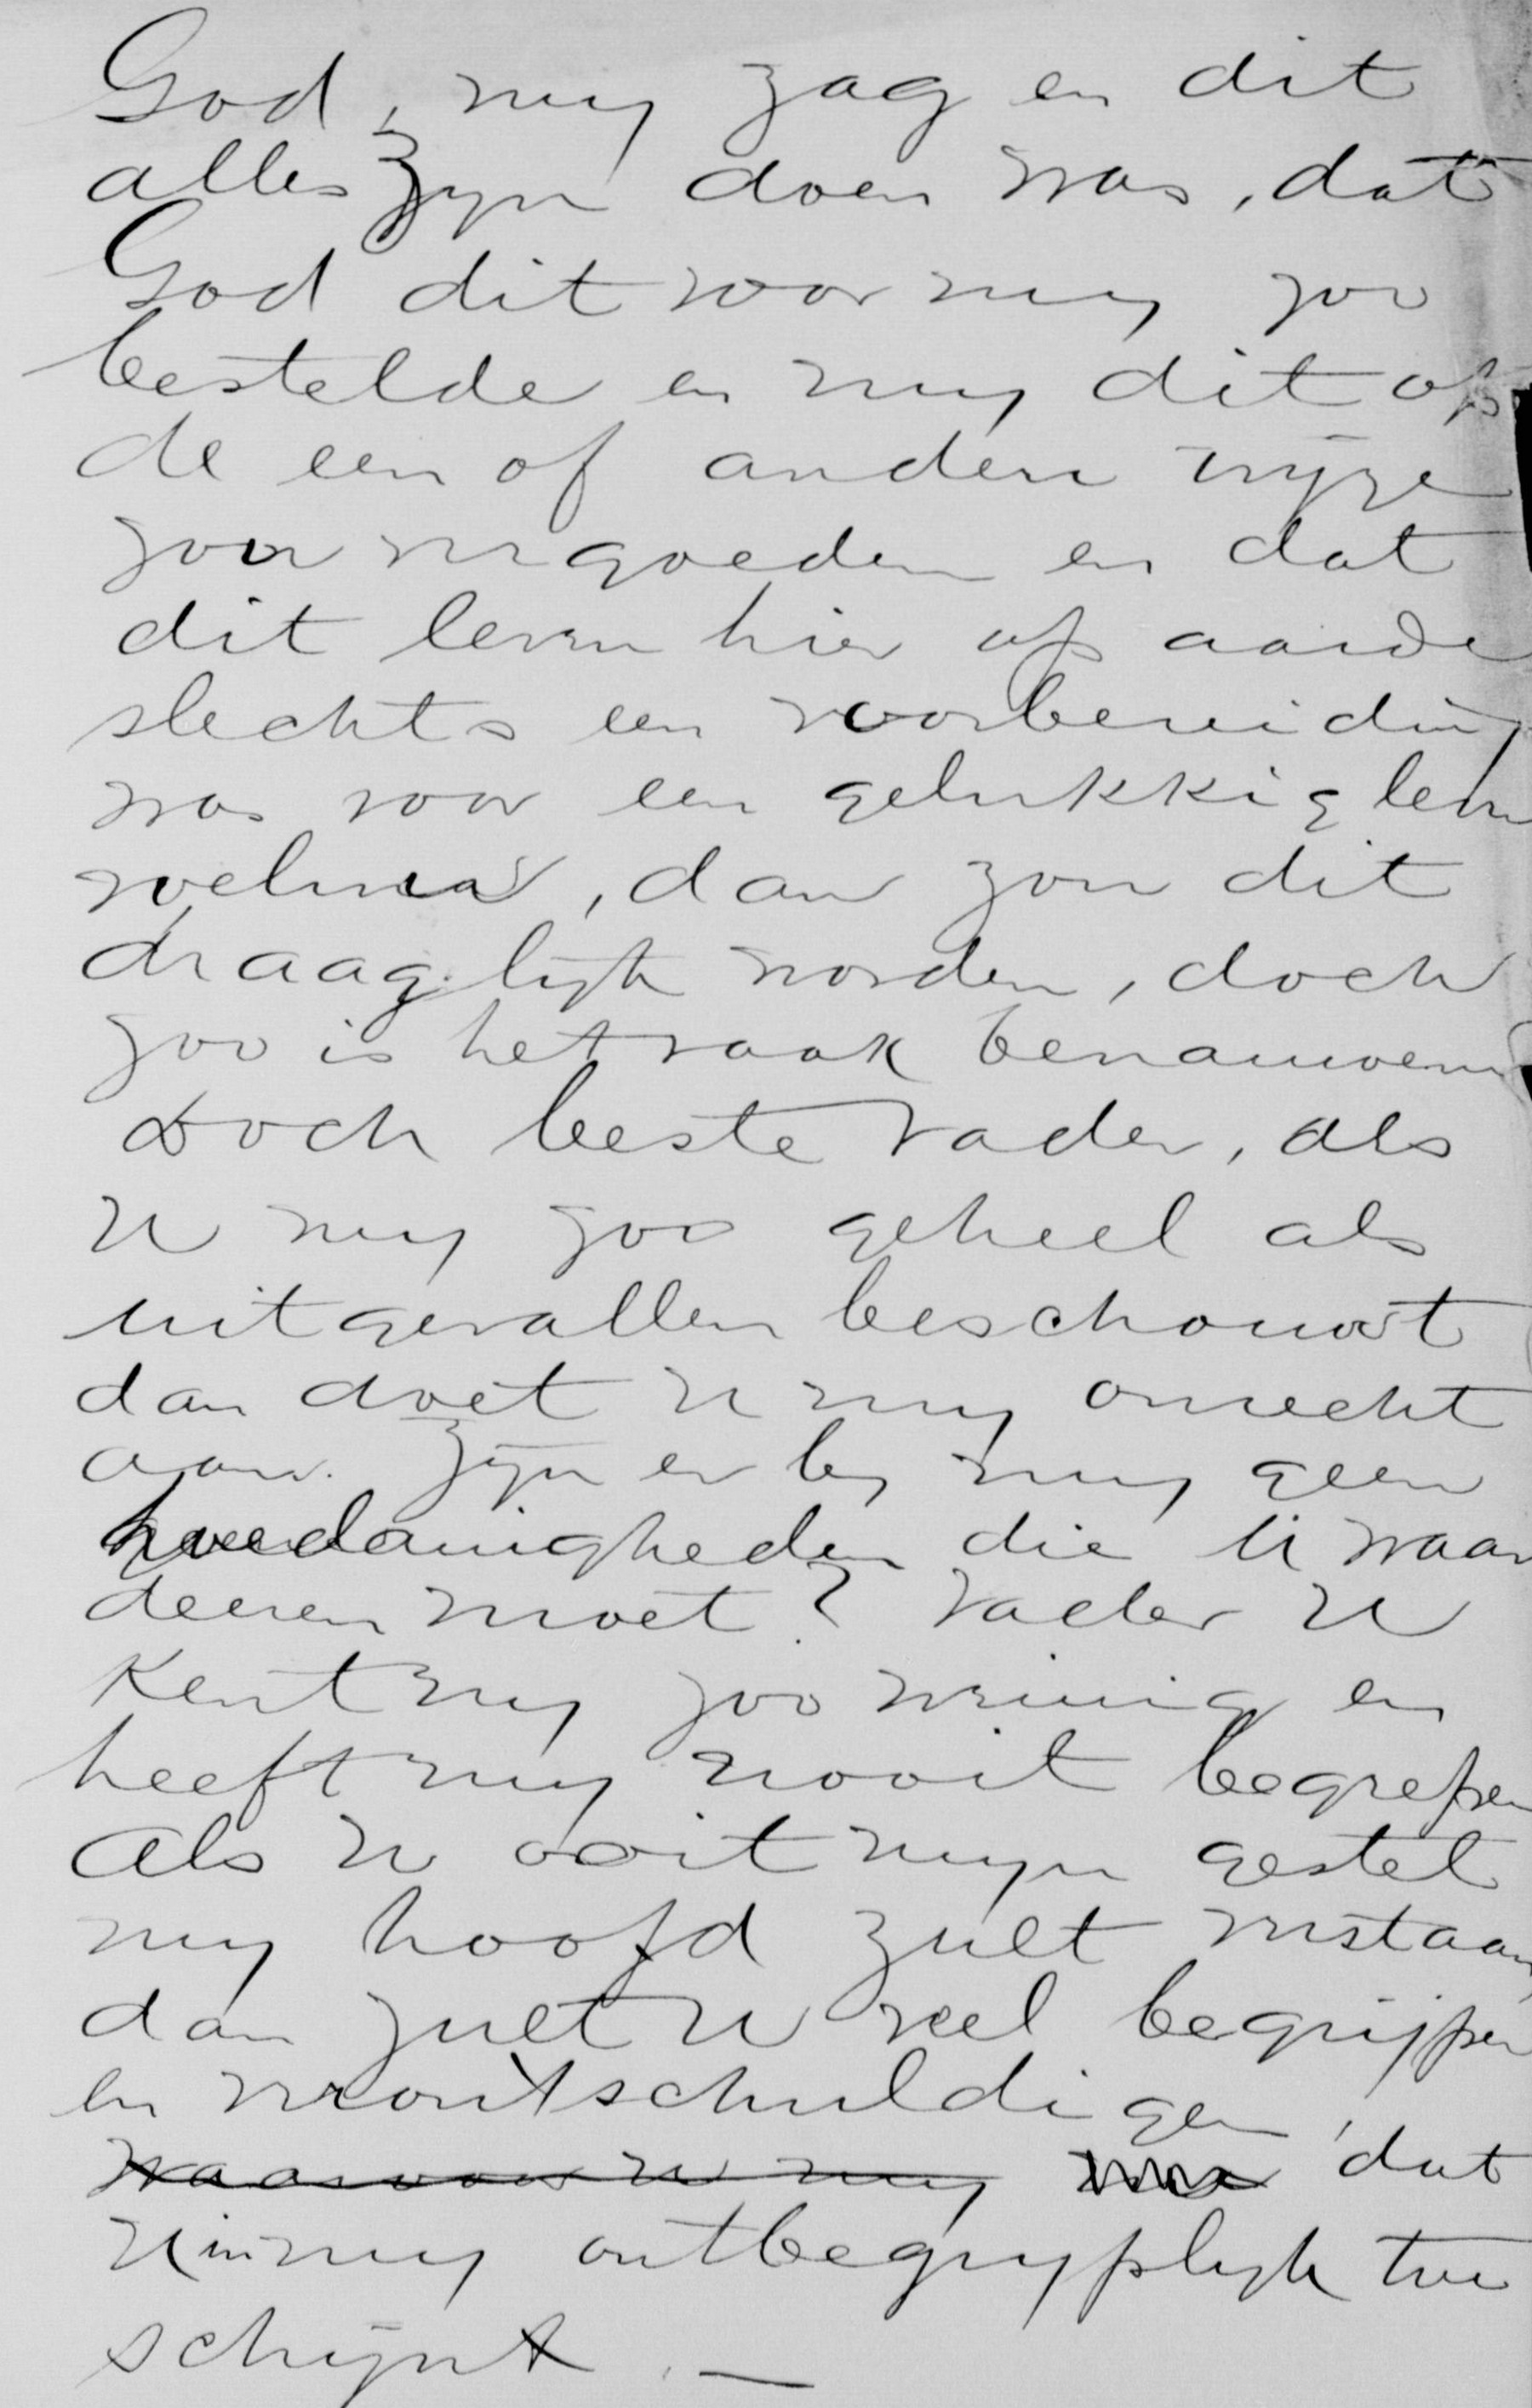 God, my zag en dit
alles Zyn doen was, dat
God dit voor my zoo
bestelde en my dit op
de een of andere wijze
zou vergoeden en dat
dit leven hier op aarde
slechts een voorbereiding
was voor een gelukkig leven
hierna, dan zou dit
draaglyk worden, doch
zoo is het vaak benauwend
Doch beste Vader, als
U my zoo geheel als
uitgevallen beschouwt
dan doet U my onrecht
aan. Zyn er by my geen
hoedanigheden die U waar
deeren moet? Vader U
Kent my zoo weinig en
heeft my nooit begrepen
Als U ooit myn gestel
my hoofd zult verstaan,
dan zult U veel begrijpen
en verontschuldigen, dat
waarvoor U my dat
U in my ontbegryplyk toe
schijnt. —